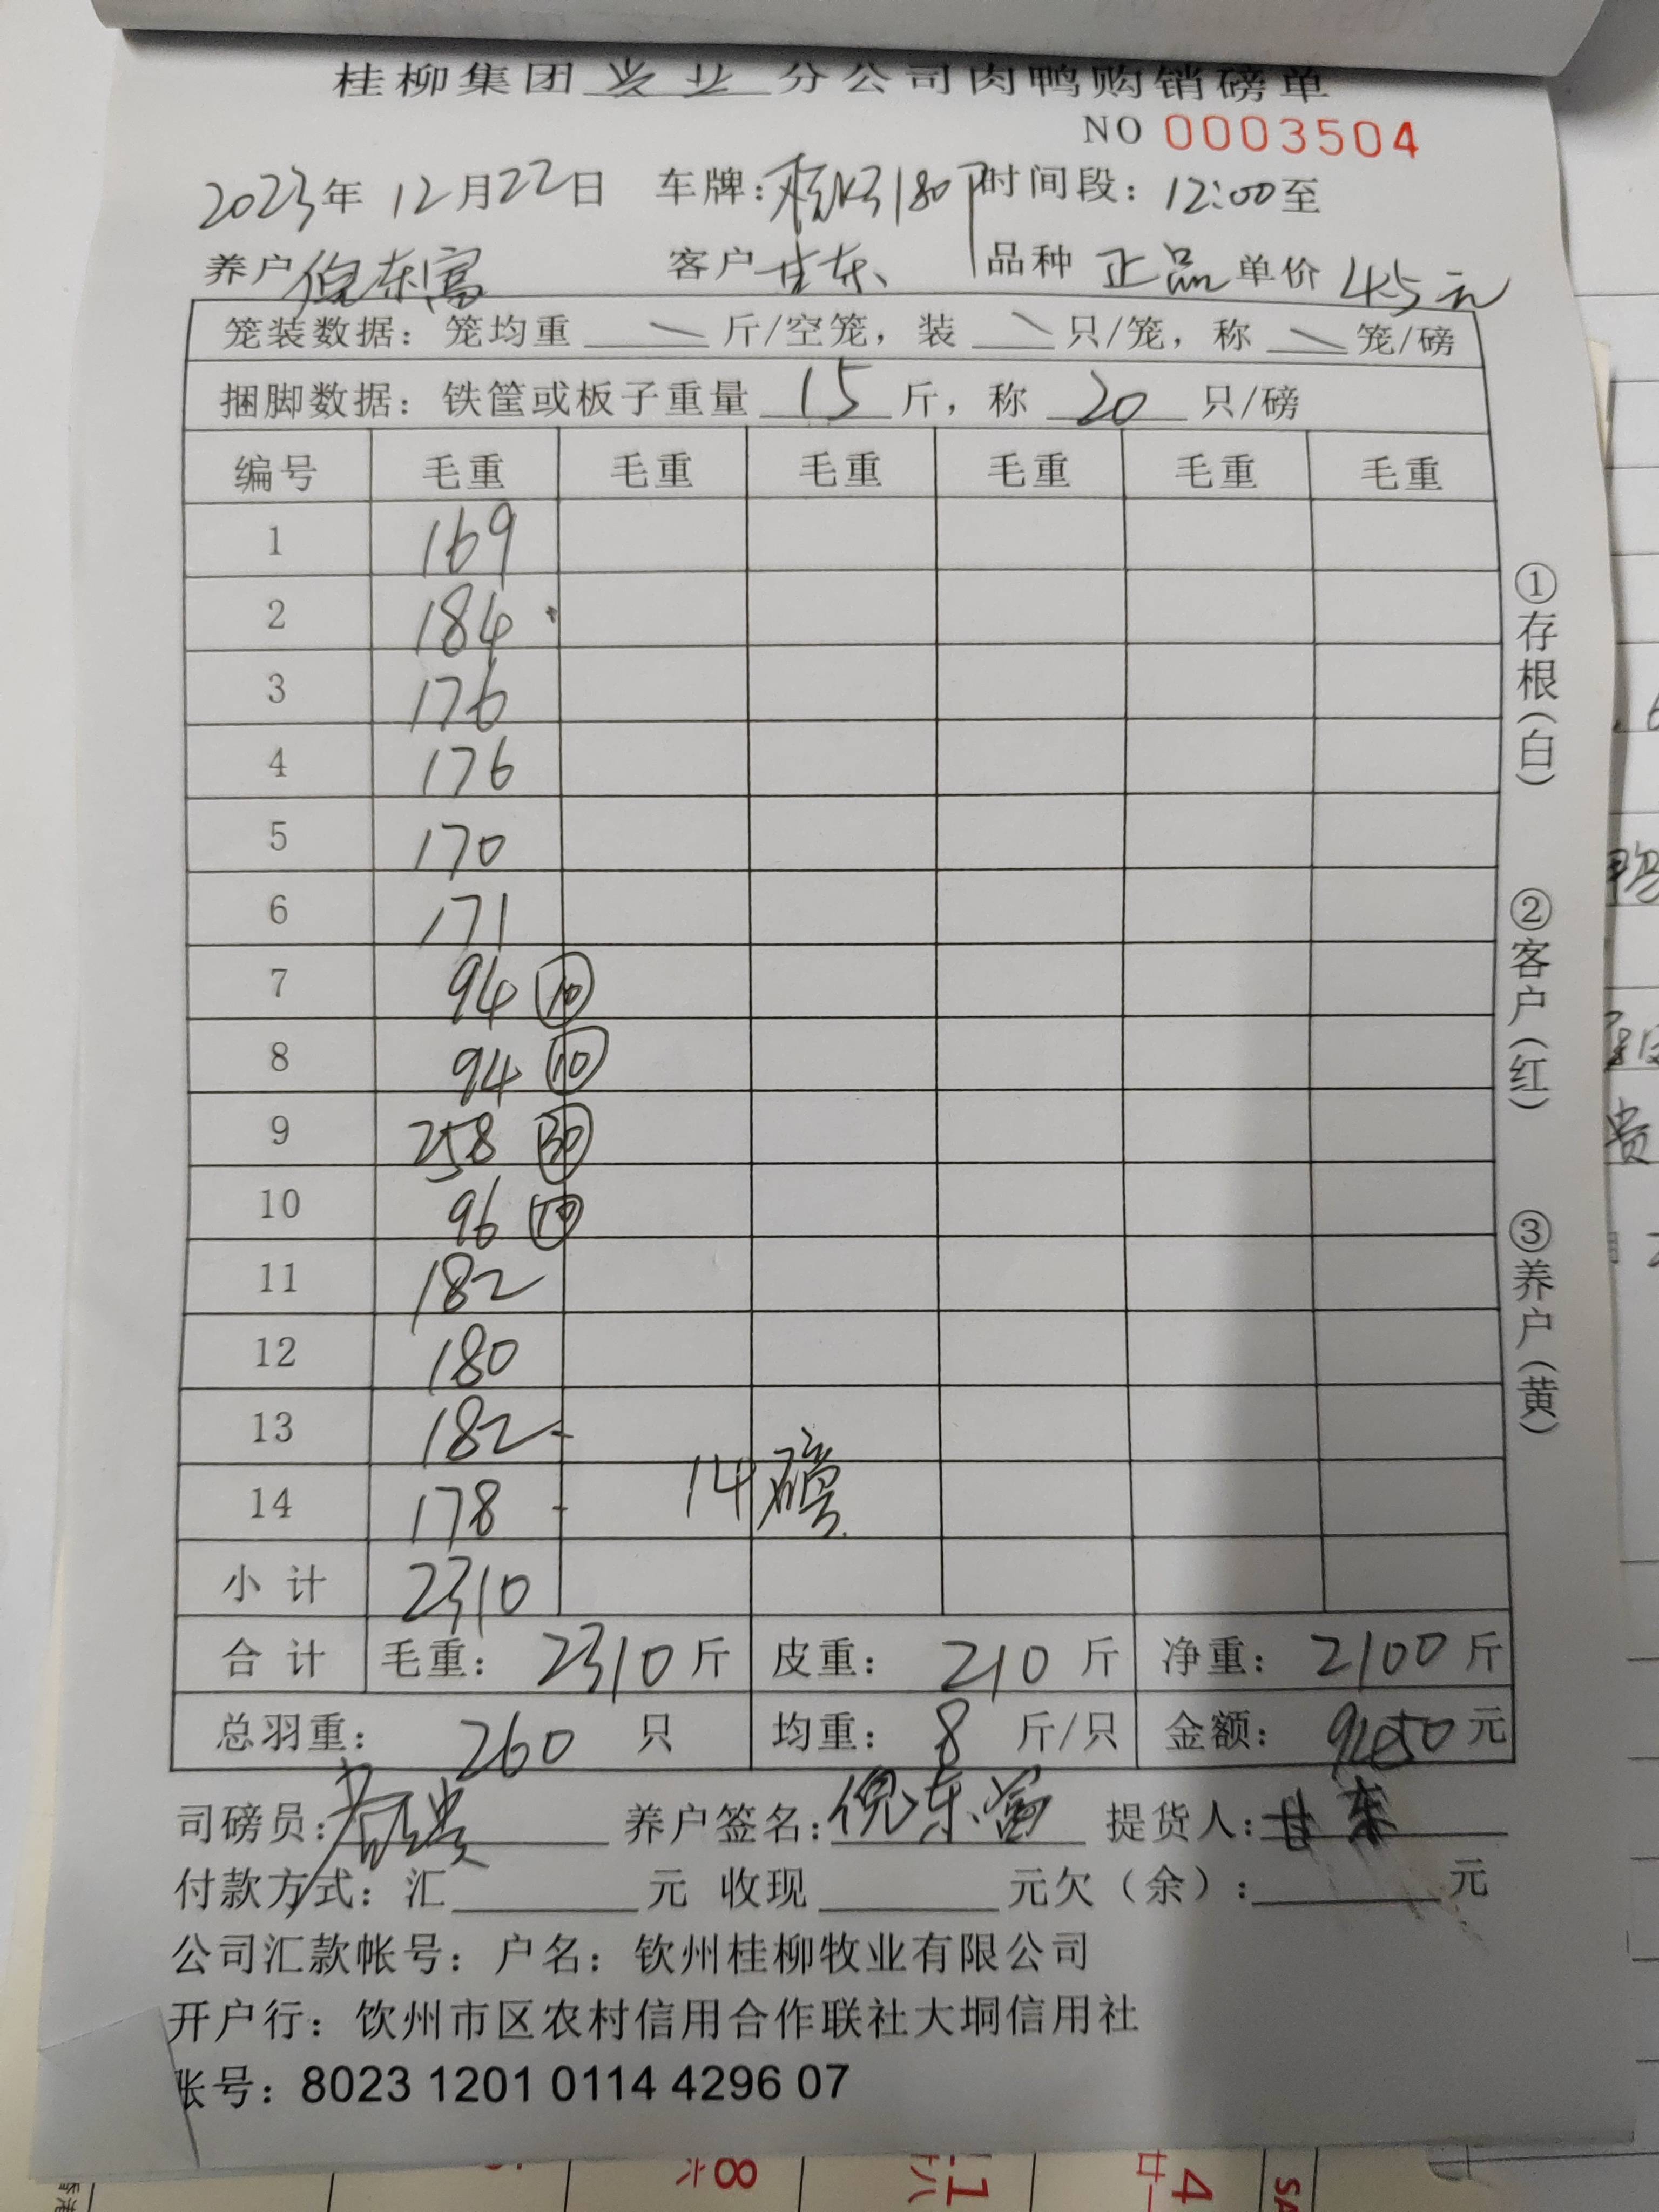 桂柳集团 兴业 分公司肉鸭购销磅单
NO 0003504
2023年 12月22日 车牌: 180 时间段: 12:00至
养户 倪东富 客户 甘东 品种 正品 单价 4.5元
笼装数据: 笼均重 \ 斤/空笼, 装 \ 只/笼, 称 \ 笼/磅
捆脚数据: 铁筐或板子重量 15 斤, 称 20 只/磅
编号 毛重 毛重 毛重 毛重 毛重 毛重
1 169
2 184
3 176
4 176
5 170
6 171
7 94 ⑩
8 94 ⑩
9 258 ㉚
10 96 ⑩
11 182
12 180
13 182
14 178 14磅
小计 2310
合计 毛重: 2310 斤 皮重: 210 斤 净重: 2100 斤
总羽重: 260 只 均重: 8 斤/只 金额: 9450 元
司磅员: 养户签名: 倪东富 提货人: 甘东
付款方式: 汇 元 收现 元欠(余): 元
公司汇款帐号: 户名: 钦州桂柳牧业有限公司
开户行: 饮州市区农村信用合作联社大垌信用社
账号: 8023 1201 0114 4296 07
①存根(白)
②客户(红)
③养户(黄)